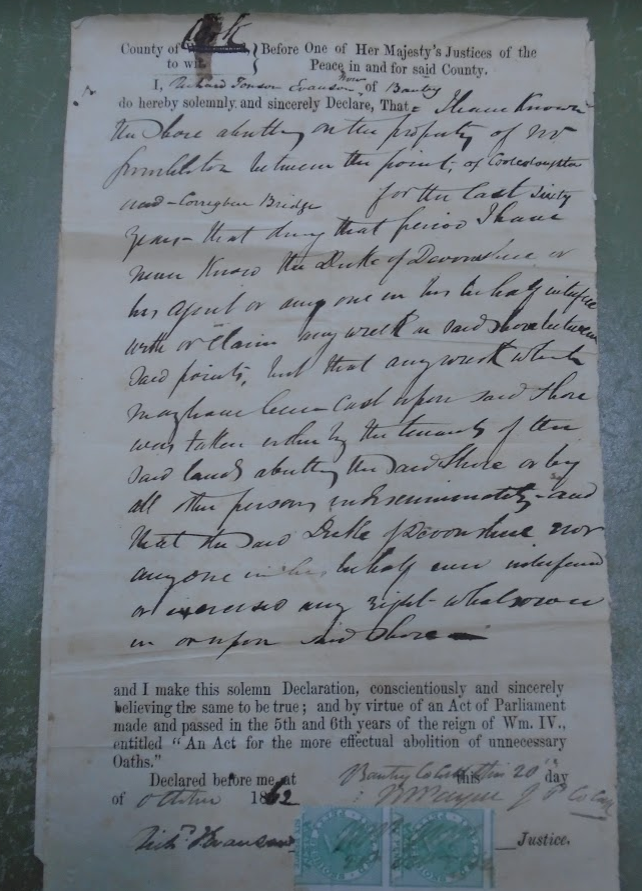 County of Cork
to wit.
Before One of Her Majesty's Justices of the
Peace in and for said County.
I, Richard Tonson Evanson now of Bantry
do hereby solemnly and sincerely Declare, That I have known
the shore abutting on the property of Mr
between the points of
and Bridge for the last sixty
years that during that period I have
never known the Duke of Devonshire or
his agent or any one in his behalf interfere
with or claim any wreck on said shore between
said points, but that any wreck which
may have been cast upon said shore
was taken either by the tenants of the
said lands abutting the said shore or by
all other persons indiscriminately and
that the said Duke of Devonshire nor
anyone in his behalf ever interfered
or exercised any right whatsoever
in or upon said shore
and I make this solemn Declaration, conscientiously and sincerely
believing the same to be true; and by virtue of an Act of Parliament
made and passed in the 5th and 6th years of the reign of Wm. IV.,
entitled "An Act for the more effectual abolition of unnecessary
Oaths."
Declared before me at Bantry Co Cork this 20th day
of October 1862
J P Co Cork
Richd T Evanson Justice.